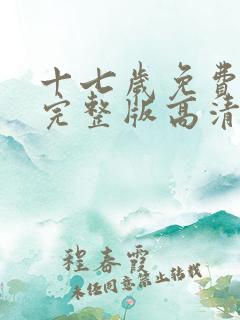 十七岁免费
完整版高清
程春霞
未经同意禁止转载